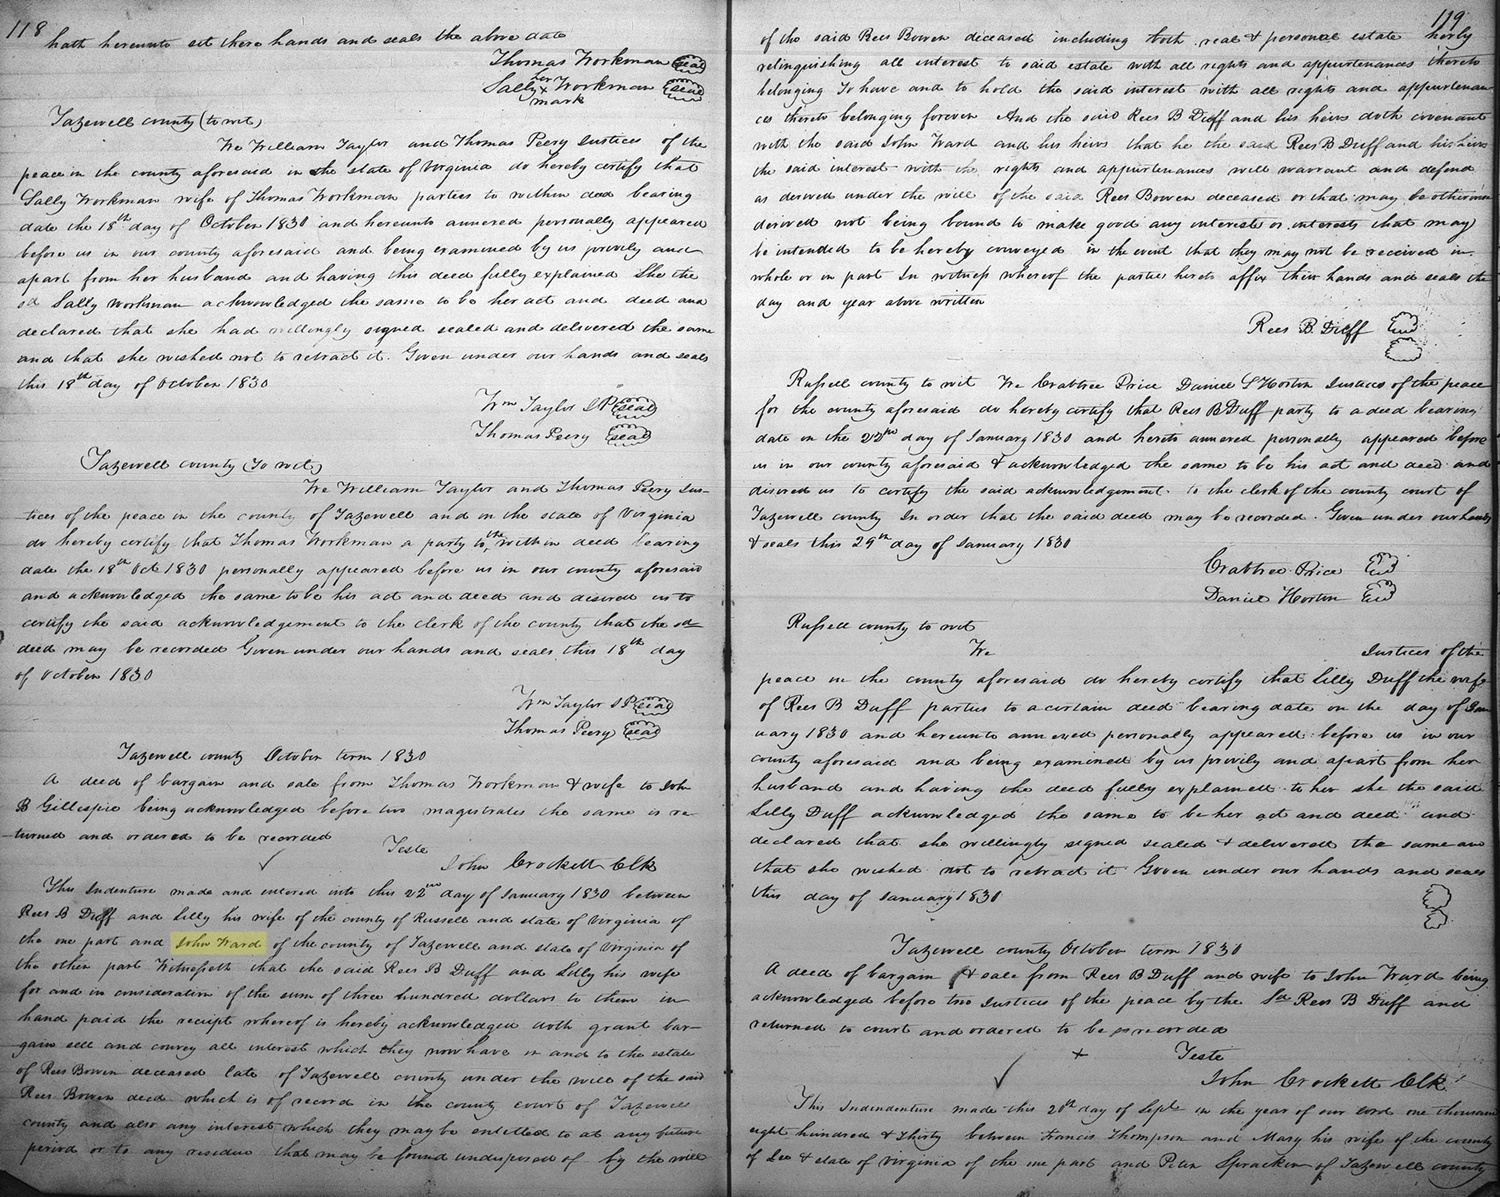 118
hath hereunto set there hands and seals the above date
Thomas Workman seal
Sally her x mark Workman seal
Tazewell county (to wit)
We William Taylor and Thomas Peery Justices of the
peace in the county aforesaid in the state of Virginia do hereby certify that
Sally Workman wife of Thomas Workman parties to within deed bearing
date the 18th day of October 1830 and hereunto annexed personally appeared
before us in our county aforesaid and being examined by us privily and
apart from her husband and having this deed fully explained She the
sd Sally Workman acknowledged the same to be her act and deed and
declared that she had willingly signed sealed and delivered the same
and that she wished not to retract it. Given under our hands and seals
this 18th day of October 1830
Wm Taylor J P seal
Thomas Peery seal
Tazewell county (to wit)
We William Taylor and Thomas Peery Jus-
tices of the peace in the county of Tazewell and in the state of Virginia
do hereby certify that Thomas Workman a party to the within deed bearing
date the 18th Oct 1830 personally appeared before us in our county aforesaid
and acknowledged the same to be his act and deed and desired us to
certify the said acknowledgement to the clerk of the county that the sd
deed may be recorded Given under our hands and seals this 18th day
of October 1830
Wm Taylor J P seal
Thomas Peery seal
Tazewell county October term 1830
A deed of bargain and sale from Thomas Workman & wife to John
B Gillespie being acknowledged before two magistrates the same is re-
turned and ordered to be recorded
Teste
John Crockett Clk
This Indenture made and entered into this 22nd day of January 1830 between
Rees B Duff and Lilly his wife of the county of Russell and state of Virginia of
the one part and John Ward of the county of Tazewell and state of Virginia of
the other part Witnesseth that the said Rees B Duff and Lilly his wife
for and in consideration of the sum of three hundred dollars to them in
hand paid the receipt whereof is hereby acknowledged doth grant bar-
gain sell and convey all interest which they now have in and to the estate
of Rees Bowen deceased late of Tazewell county under the will of the said
Rees Bowen decd which is of record in the county court of Tazewell
county and also any interest which they may be entitled to at any future
period or to any residue that may be found undisposed of by the will
119
of the said Rees Bowen deceased including both real & personal estate herby
relinquishing all interest to said estate with all rights and appurtenances thereto
belonging To have and to hold the said interest with all rights and appurtenan-
ces thereto belonging forever And the said Rees B Duff and his heirs doth covenant
with the said John Ward and his heirs that he the said Rees B Duff and his heirs
the said interest with the rights and appurtenances will warrant and defend
as derived under the will of the said Rees Bowen deceased or that may be otherwise
derived not being bound to make good any interest or interests that may
be intended to be hereby conveyed in the event that they may not be received in
whole or in part In witness whereof the parties hereto affix their hands and seals the
day and year above written
Rees B. Duff
Russell county to wit We Crabtree Price Daniel Horton Justices of the peace
for the county aforesaid do hereby certify that Rees B Duff party to a deed bearing
date on the 22nd day of January 1830 and hereto annexed personally appeared before
us in our county aforesaid & acknowledged the same to be his act and deed and
desired us to certify the said acknowledgement to the clerk of the county court of
Tazewell county In order that the said deed may be recorded. Given under our hands
& seals this 29th day of January 1830
Crabtree Price
Daniel Horton
Russell county to wit
We Justices of the
peace in the county aforesaid do hereby certify that Lilly Duff the wife
of Rees B Duff parties to a certain deed bearing date on the day of Jan
uary 1830 and hereunto annexed personally appeared before us in our
county aforesaid and being examined by us privily and apart from her
husband and having the deed fully explained to her she the said
Lilly Duff acknowledged the same to be her act and deed and
declared that she willingly signed sealed & delivered the same and
that she wished not to retract it Given under our hands and seals
this day of January 1830
Tazewell county October term 1830
A deed of bargain & sale from Rees B Duff and wife to John Ward being
acknowledged before two Justices of the peace by the Sd Rees B Duff and
returned to court and ordered to be recorded
Teste
John Crockett Clk
This Indendenture made this 20th day of Sept in the year of our lord one thousand
eight hundred & thirty between Francis Thompson and Mary his wife of the county
of Lee & state of Virginia of the one part and Peter Spracken of Tazewell county